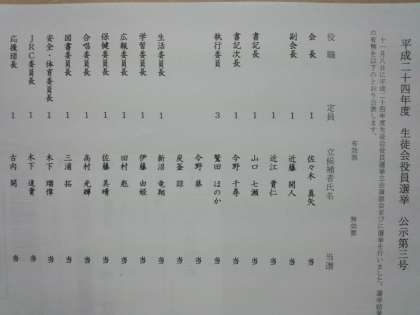 平成二十四年度 生徒会役員選挙 公示第三号
十一月八日に平成二十四年度生徒会役員選挙立会演説会並びに選挙を行いました。選挙結果
の有無を以下のとおり公表します。
有効票 無効票
役職 定員 立候補者氏名 当選
会長 1 佐々木 真矢 当
副会長 1 近藤 開人 当
近江 貴仁 当
書記長 1 山口 七瀬 当
書記次長 1 今野 千尋 当
執行委員 3 鷲田 ほのか 当
今野 藤 当
炭釜 諒 当
生活委員長 1 新沼 竜翔 当
学習委員長 1 伊藤 由姫 当
広報委員長 1 田村 彪 当
保健委員長 1 佐藤 美晴 当
合唱委員長 1 高村 光輝 当
図書委員長 1 三浦 拓 当
安全・体育委員長 1 木下 瑠偉 当
JRC委員長 1 木下 達貴 当
応援団長 1 古内 間 当